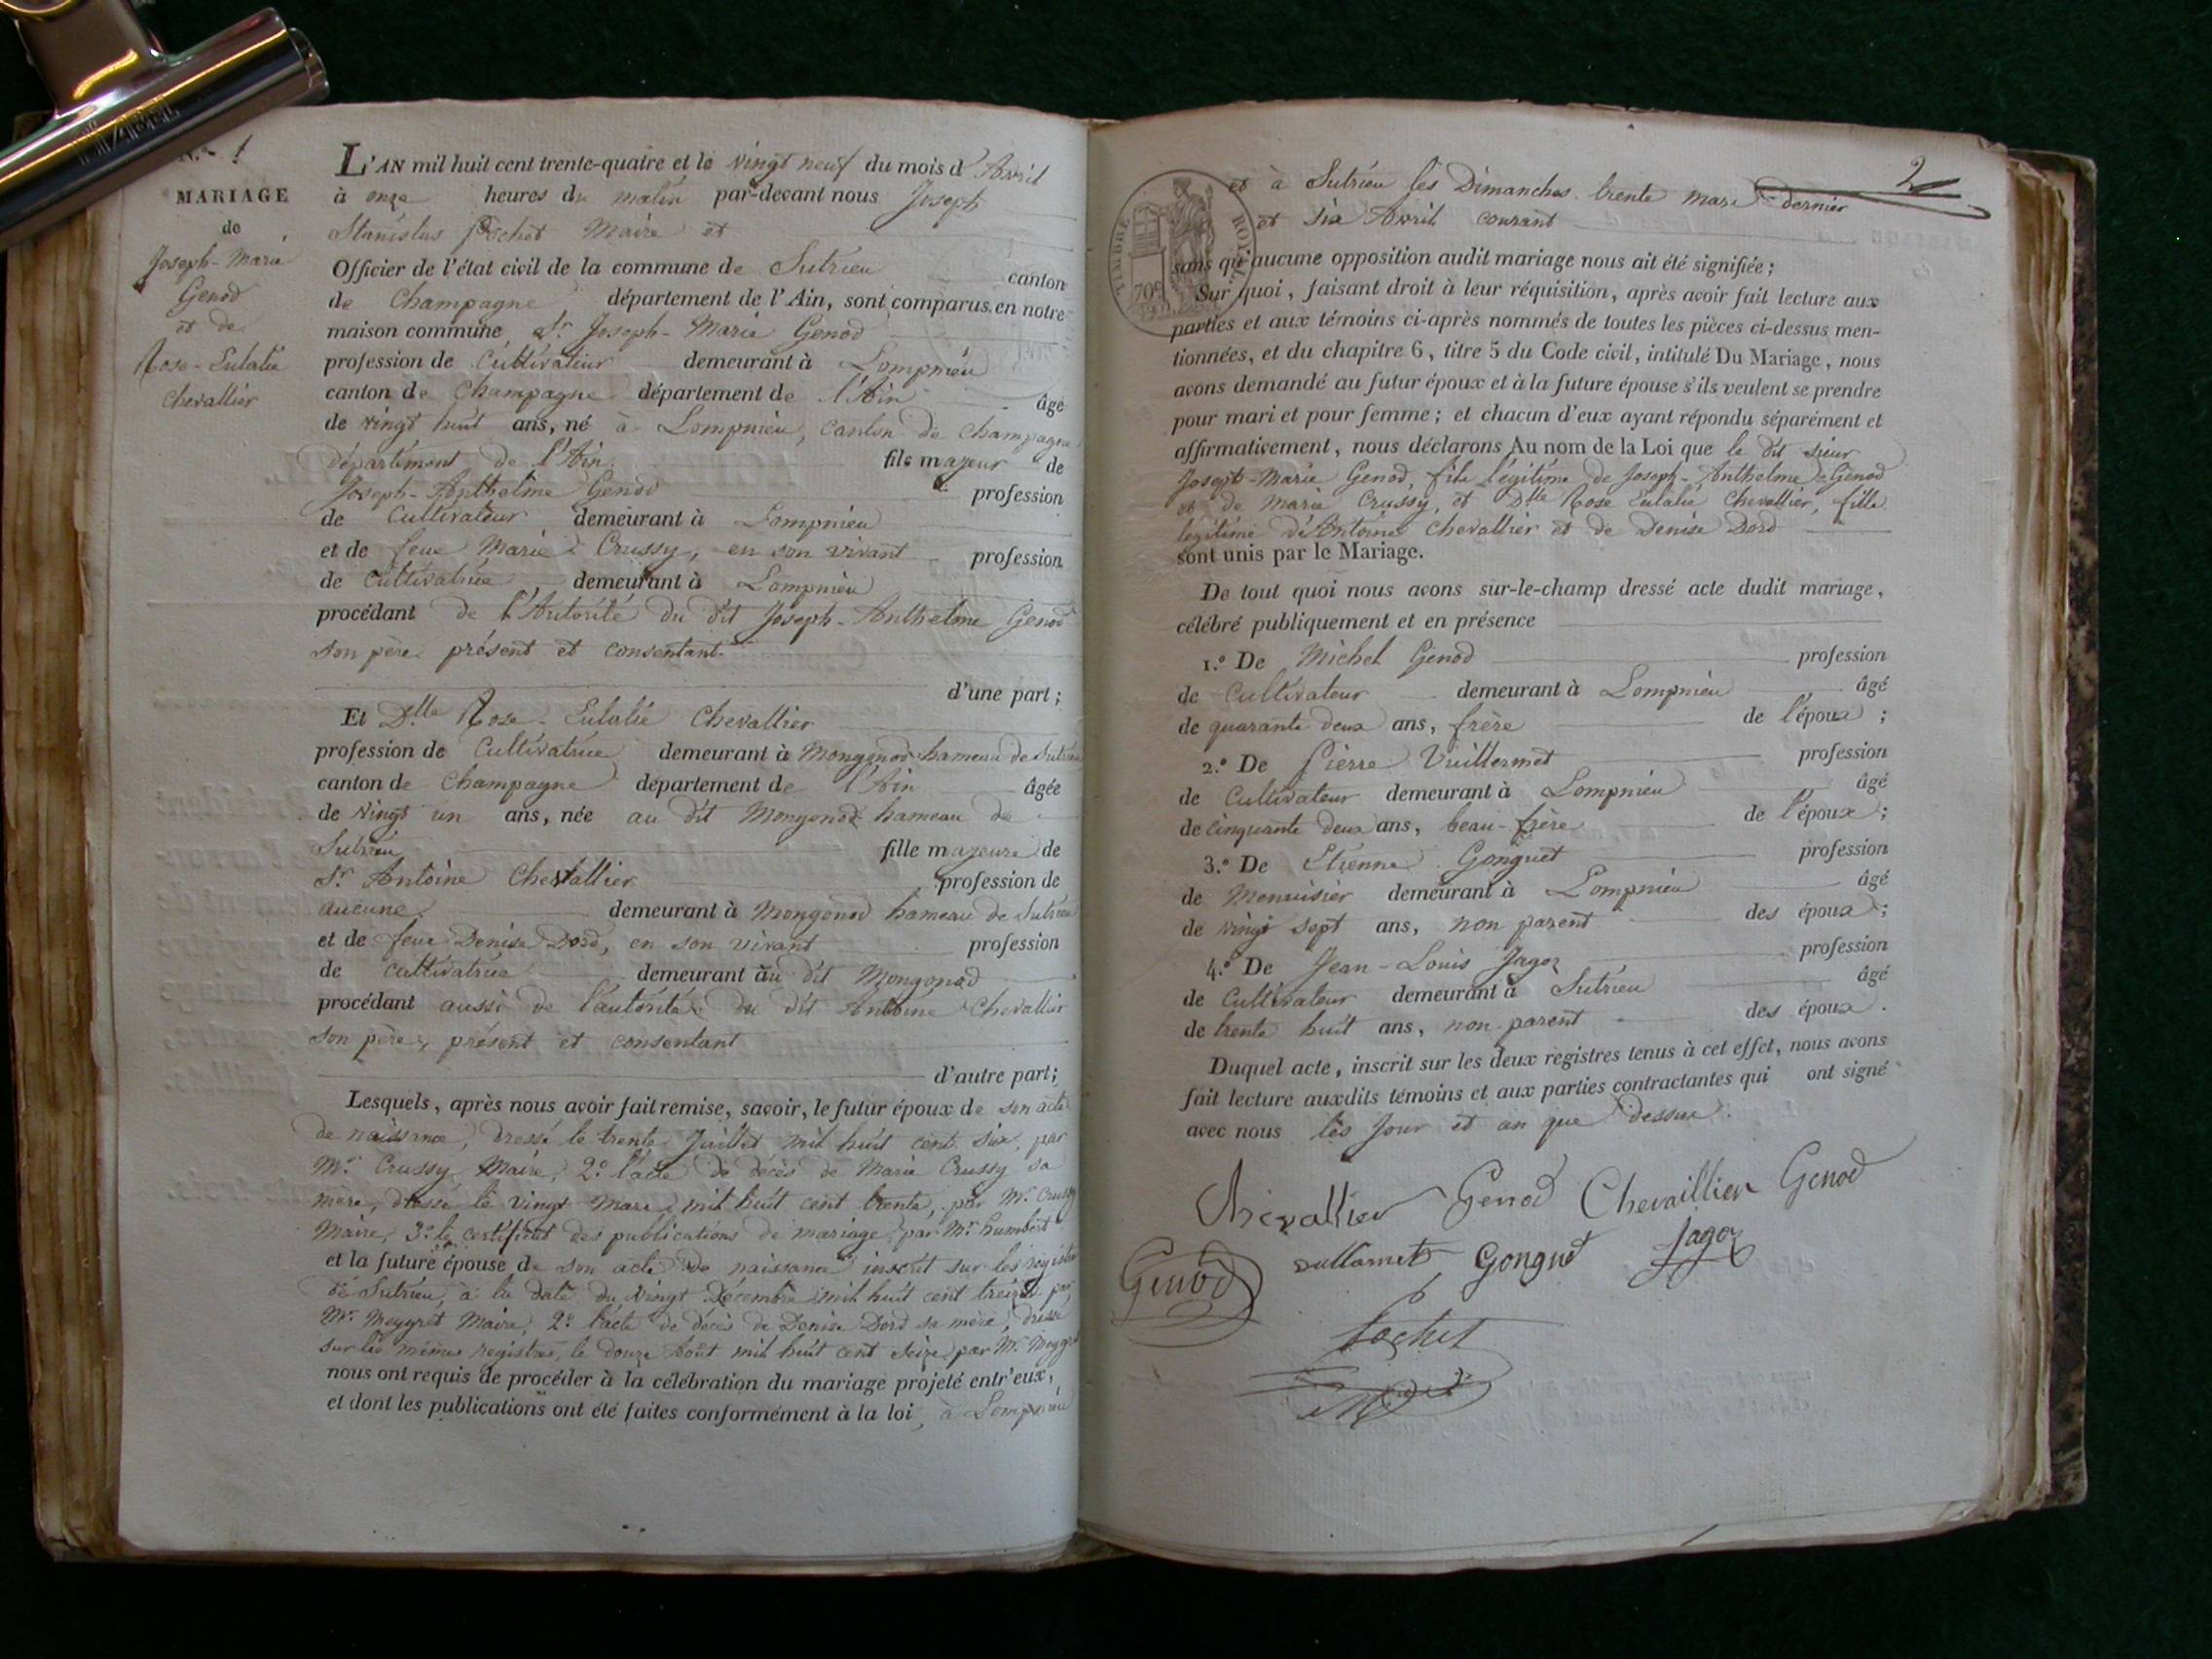 N.º 1
MARIAGE
de
Joseph-Marie
Genod
et de
Rose-Eulalie
Chevallier
L'AN mil huit cent trente-quatre et le vingt neuf du mois d'Avril
à onze heures du matin par-devant nous Joseph
Stanislas Pochet Maire et
Officier de l'état civil de la commune de Sutrieu canton
de Champagne département de l'Ain, sont comparus en notre
maison commune Sr. Joseph-Marie Genod
profession de Cultivateur demeurant à Lompnieu
canton de Champagne département de l'Ain âgé
de vingt huit ans, né à Lompnieu, canton de Champagne
département de l'Ain fils majeur de
Joseph-Anthelme Genod profession
de Cultivateur demeurant à Lompnieu
et de feue Marie Crussy, en son vivant profession
de Cultivatrice demeurant à Lompnieu
procédant de l'Autorité du dit Joseph-Anthelme Genod
son père présent et consentant
d'une part;
Et D.lle Rose-Eulalie Chevallier
profession de Cultivatrice demeurant à Mongonod hameau de Sutrieu
canton de Champagne département de l'Ain âgée
de vingt un ans, née au dit Mongonod hameau de
Sutrieu fille majeure de
Sr. Antoine Chevallier profession de
aucune demeurant à Mongonod hameau de Sutrieu
et de feue Denise Dord, en son vivant profession
de cultivatrice demeurant au dit Mongonod
procédant aussi de l'autorité du dit Antoine Chevallier
son père, présent et consentant
d'autre part;
Lesquels, après nous avoir fait remise, savoir, le futur époux de son acte
de naissance, dressé le trente Juillet mil huit cent six, par
Mr. Crussy Maire, 2.º l'acte de décès de Marie Crussy sa
mère, dressé le vingt Mars mil huit cent trente, par Mr. Crussy
Maire, 3.º le certificat des publications de mariage, par Mr. humbert
et la future épouse de son acte de naissance inscrit sur les registres
de Sutrieu, à la date du vingt Décembre mil huit cent treize par
Mr. Meygret Maire, 2.º l'acte de décès de Denise Dord sa mère, dressé
sur les mêmes registres, le douze Août mil huit cent seize par Mr. Meygret
nous ont requis de procéder à la célébration du mariage projeté entr'eux,
et dont les publications ont été faites conformément à la loi, à Lompnieu
2
et à Sutrieu les Dimanches trente mars dernier
et six Avril courant
TIMBRE ROYAL
70c
sans qu'aucune opposition audit mariage nous ait été signifiée;
Sur quoi, faisant droit à leur réquisition, après avoir fait lecture aux
parties et aux témoins ci-après nommés de toutes les pièces ci-dessus men-
tionnées, et du chapitre 6, titre 5 du Code civil, intitulé Du Mariage, nous
avons demandé au futur époux et à la future épouse s'ils veulent se prendre
pour mari et pour femme; et chacun d'eux ayant répondu séparément et
affirmativement, nous déclarons Au nom de la Loi que le dit sieur
Joseph-Marie Genod, fils légitime de Joseph-Anthelme Genod
et de Marie Crussy, et D.lle Rose Eulalie Chevallier, fille
légitime d'Antoine Chevallier et de Denise Dord
sont unis par le Mariage.
De tout quoi nous avons sur-le-champ dressé acte dudit mariage,
célébré publiquement et en présence
1.º De Michel Genod profession
de Cultivateur demeurant à Lompnieu âgé
de quarante deux ans, frère de l'époux;
2.º De Pierre Vuillermet profession
de Cultivateur demeurant à Lompnieu âgé
de cinquante deux ans, beau-frère de l'époux;
3.º De Etienne Gonguet profession
de Menuisier demeurant à Lompnieu âgé
de vingt sept ans, non parent des époux;
4.º De Jean-Louis Jagoz profession
de Cultivateur demeurant à Sutrieu âgé
de trente huit ans, non parent des époux.
Duquel acte, inscrit sur les deux registres tenus à cet effet, nous avons
fait lecture auxdits témoins et aux parties contractantes qui ont signé
avec nous les Jour et an que dessus.
Chevallier Genod Chevaillier Genod
Genod Gonguet Jagoz
Pochet